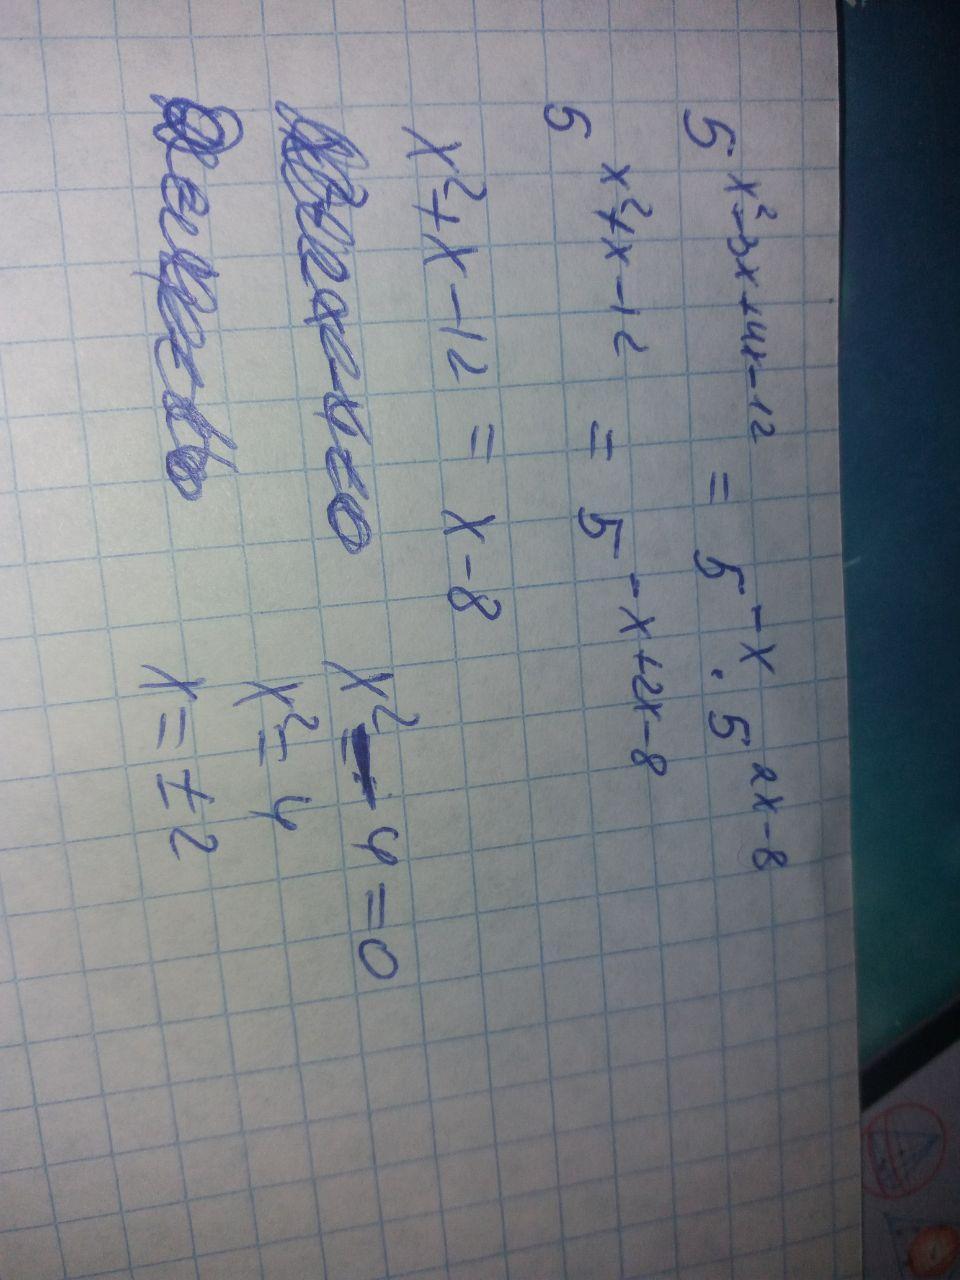 5^{x²-3x+4x-12} = 5^{-x} · 5^{2x-8}
5^{x²+x-12} = 5^{-x+2x-8}
x²+x-12 = x-8
x²-4=0
x²=4
x=±2